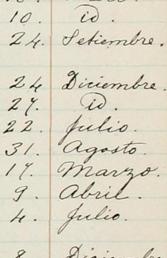 10. id.
24. Setiembre.
24 Diciembre.
27. id.
22. Julio.
31. Agosto.
17. Marzo.
9. Abril.
4. Julio.